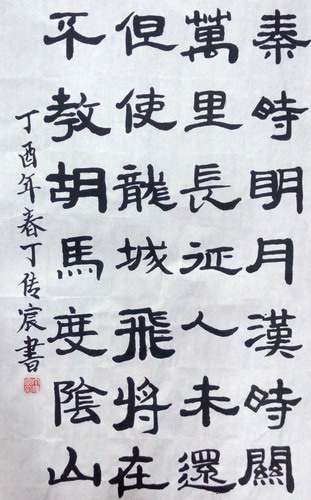 秦時明月漢時關
萬里長征人未還
但使龍城飛將在
不教胡馬度陰山
丁酉年春丁传宸書